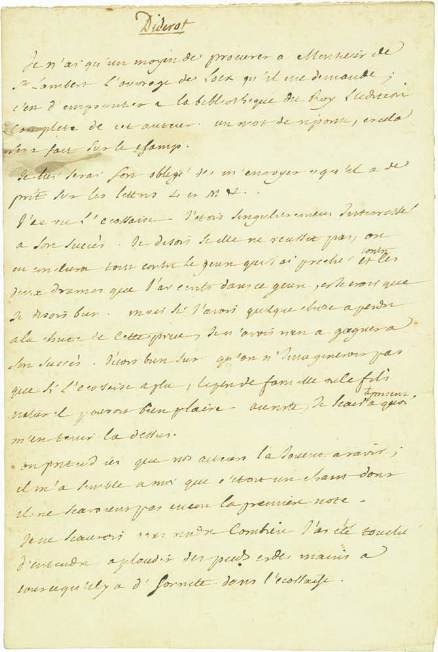 Diderot
Je n'ai qu'un moyen de procurer a Monsieur de
St Lambert l'ouvrage de qu'il me demande ;
c'est d'emprunter a la bibliotheque du Roy l'edition
complette de cet auteur. un mot de reponse, et cela
sera fait sur le champ.
Je lui serai fort obligé de m'envoyer ce qu'il a de
prêt sur les lettres L et M &.
J'ai vu l'Ecossaise. J'etois singulierement interressé
a son succès. Je disois si elle ne reussit pas, on
en conclura tout contre le genre que j'ai preché et contre les
deux drames que j'ai ecrits dans ce genre, et je crois que
je disois bien. mais si j'avois quelque chose a perdre
a la chute de cette piece, je n'avois rien a gagner a
son succès. J'etois bien sur qu'on n'imagineroit pas
que si l'Ecossaise a plu, le pere de famille ou le fils
naturel pourroit bien plaire. au reste, je scais a quoi
m'en tenir la dessus.
on pretend ici que nos acteurs la jouent a ravir ;
il m'a semblé a moi que c'etoit un chant dont
il ne scavoient pas encor la premiere note.
Je ne scaurois vous rendre combien j'ai eté touché
d'entendre aplaudir des pieds et des mains a
tout ce qu'il y a d'honnete dans l'ecossaise.